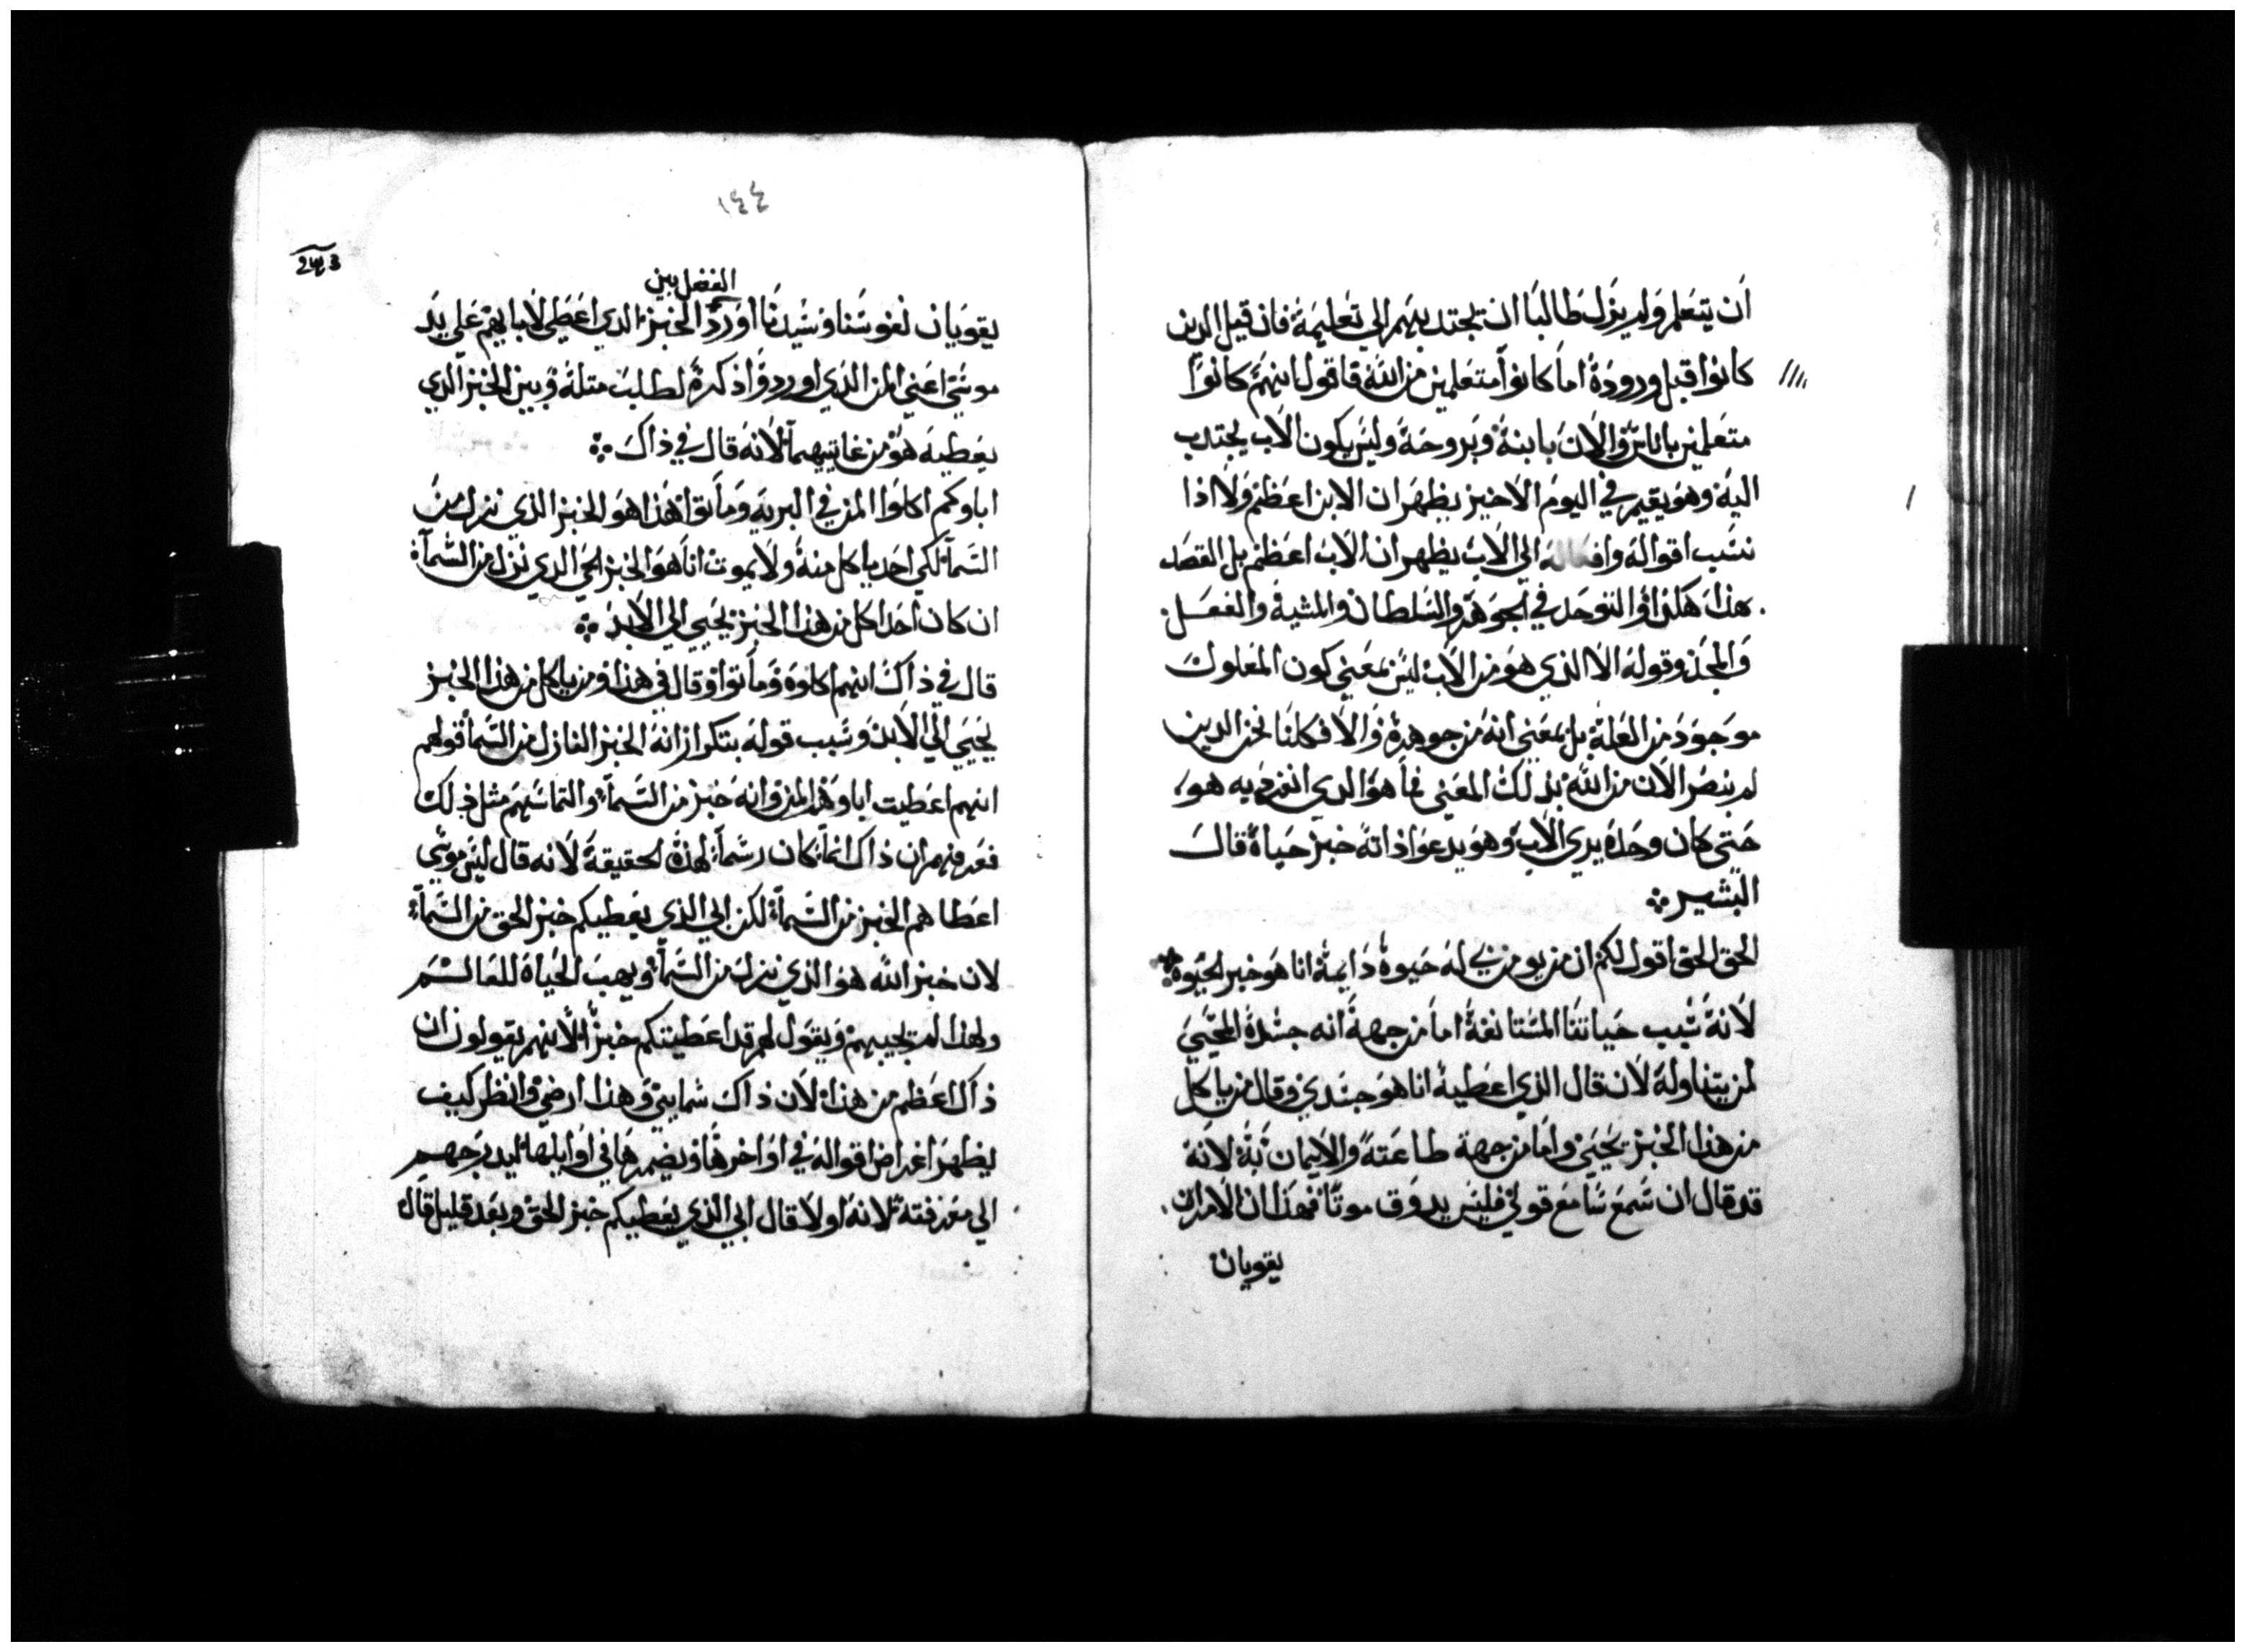 ان يتعلم ولم يزل طالبا ان يجتدبهم الي تعليمة فان قيل الدين
كانوا قبل وروده اما كانوا متعلمين من الله فاقول انهم كانوا
متعلمين باناس والان بابنة وبروحة وليس بكون الاب يجتدب
الية وهو يقيم في اليوم الاخير يظهر ان الابن اعظم ولا اذا
نسب اقواله وافعاله الي الاب يظهر ان الاب اعظم بل القصد
هذا هكذا والتوحد في الجوهر والسلطان والمشية والفعل
والمجد وقوله الا الذي هو من الاب ليس بمعني كون المعلول
موجود من العلة بل بمعني انه من جوهرة والا فكلنا نحن الدين
لم نبصر الان من الله بذلك المعني فما هو الدي انفرد به هو
حتي كان وحده يري الاب وهو يدعوا داته خبز حياة قال
البشير
الحق الحق اقول لكم ان من يومن بي له حيوة دايمة انا هو خبز الحيوة
لانة سبب حياتنا المستانفة اما من جهة انه جسدة المحيي
لمن يتناوله لان قال الذي اعطية انا هو جسدي وقال من ياكل
من هذا الخبز يحيي واما من جهة طاعته والايمان به لانه
قد قال ان سمع سامع قولي فليس يدوق موتا فهذان الامران
يقويان
١٤٤
243
الفصل بين
يقويان نفوسنا وسيدنا اورد الخبز الدي اعطي لابايهم علي يد
موسي اعني المن الدي اوردوا ذكره لطلب مثلة وبين الخبز الدي
يعطيه هو من غايتيهما لانه قال في ذاك
اباوكم اكلوا المن في البرية وماتوا هذا هو الخبز الذي نزل من
السما لكي احد ياكل منه ولا يموت انا هو الخبز الحي الدي نزل من السما
ان كان احدا كل من هذا الخبز يحيي الي الابد
قال في ذاك انهم اكلوه وماتوا وقال في هذا ومن ياكل من هذا الخبز
يحيي الي الابد وسبب قوله بتكرار انه الخبز النازل من السما قولهم
انهم اعطيت اباوهم المن وانه خبز من السما والتماسهم مثل ذلك
فعرفهم ان ذاك انما كان رسما لهذة الحقيقة لانه قال ليس موسي
اعطاهم الخبز من السما لكن ابي الذي يعطيكم خبز الحق من السما
لان خبز الله هو الذي نزل من السما ويهب الحياة للعالم
ولهذا لم يجيبهم ويقول لهم قد اعطيتكم خبزا لانهم يقولون ان
ذاك اعظم من هذا لان ذاك سمايي وهذا ارضي وانظر كيف
يظهر اغراض اقواله في اواخرها ويضمرها في اوايلها ليدرجهم
الي معرفته لانه اولا قال ابي الذي يعطيكم خبز الحق وبعد قليل قال